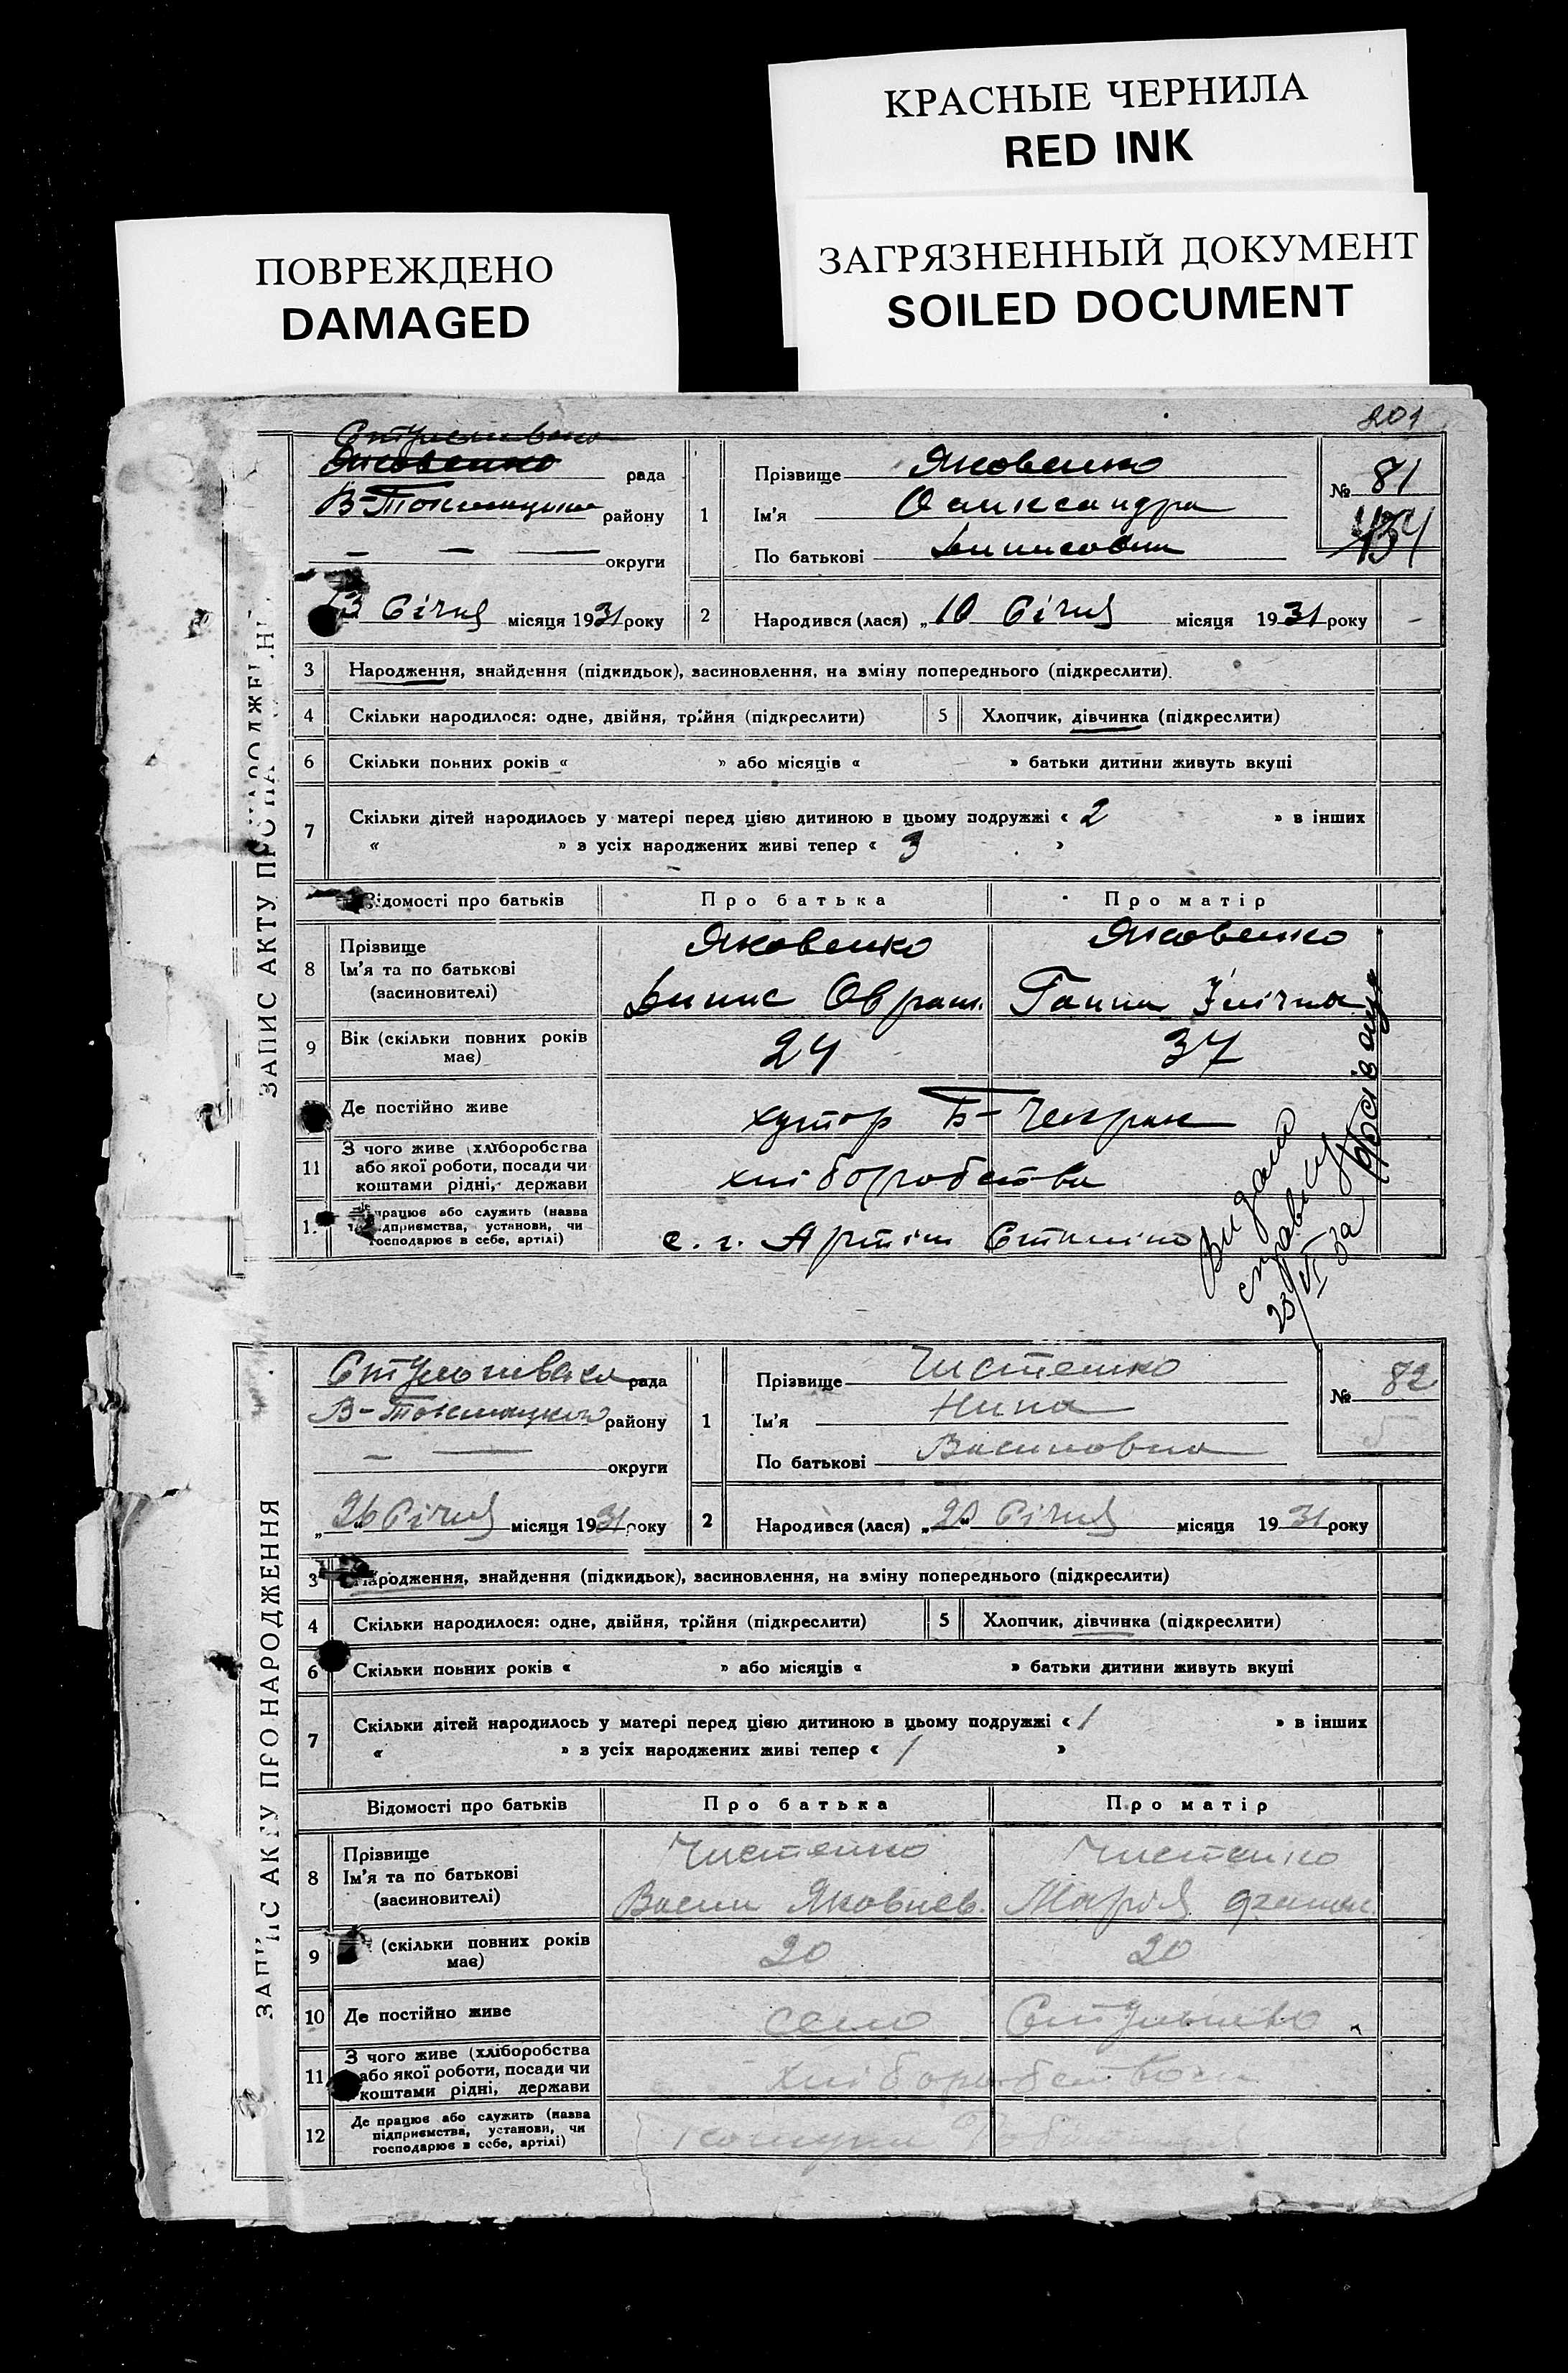 КРАСНЫЕ ЧЕРНИЛА
RED INK
ЗАГРЯЗНЕННЫЙ ДОКУМЕНТ
SOILED DOCUMENT
ПОВРЕЖДЕНО
DAMAGED
201
ЗАПИС АКТУ ПРО
Яковенко рада
В-Токмацького району
— — — округи
1
Прізвище Яковенко
Ім'я Олександра
По батькові Динисовна
№ 81
434
13 Січня місяця 1931 року
2 Народився (лася) „10 Січня місяця 1931 року
3 Народження, знайдення (підкидьок), засиновлення, на зміну попереднього (підкреслити).
4 Скільки народилося: одне, двійня, трійня (підкреслити) 5 Хлопчик, дівчинка (підкреслити)
6 Скільки повних років « » або місяців « » батьки дитини живуть вкупі
7 Скільки дітей народилось у матері перед цією дитиною в цьому подружжі « 2 » в інших
« » з усіх народжених живі тепер « 3 »
Відомості про батьків Про батька Про матір
8 Прізвище Яковенко Яковенко
Ім'я та по батькові
(засиновителі) Динис Оврам. Ганна Ілічна
9 Вік (скільки повних років має) 24 37
Де постійно живе хутор Б-Чекрак
11 З чого живе (хліборобства
або якої роботи, посади чи
коштами рідні, держави хліборобства
працює або служить (назва
підприємства, установи, чи
господарює в себе, артілі) с. г. Артіль Сталіна
Видано
23/VI
за
ЗАПИС АКТУ ПРО НАРОДЖЕННЯ
рада
В-Токмацького району
— — округи
1
Прізвище Чистенко
Ім'я Нина
По батькові Василовна
№ 82
„26 Січня місяця 1931 року
2 Народився (лася) „20 Січня місяця 1931 року
3 Народження, знайдення (підкидьок), засиновлення, на зміну попереднього (підкреслити)
4 Скільки народилося: одне, двійня, трійня (підкреслити) 5 Хлопчик, дівчинка (підкреслити)
6 Скільки повних років « » або місяців « » батьки дитини живуть вкупі
7 Скільки дітей народилось у матері перед цією дитиною в цьому подружжі « 1 » в інших
« » з усіх народжених живі тепер « 1 »
Відомості про батьків Про батька Про матір
8 Прізвище Чистенко Чистенко
Ім'я та по батькові
(засиновителі) Васил Яковлев. Марія
9 (скільки повних років має) 20 20
10 Де постійно живе село
11 З чого живе (хліборобства
або якої роботи, посади чи
коштами рідні, держави хліборобства
12 Де працює або служить (назва
підприємства, установи, чи
господарює в себе, артілі)